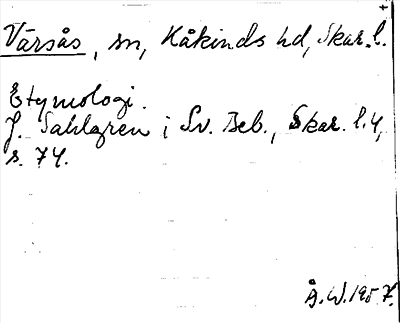 Värsås, sn, Kåkinds hd, Skar. l.
Etymologi.
J. Sahlgren i Sv. Beb., Skar. l. 4,
s. 74.
Å. W. 1957.